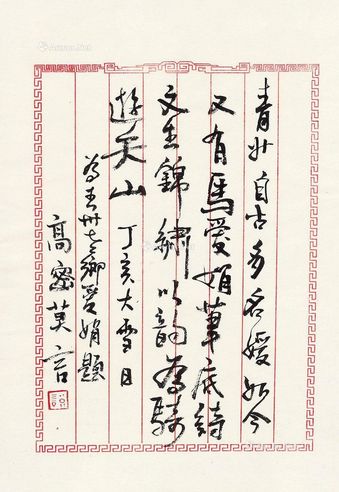 Artron.Net
青州自古多名媛如今
又有馬愛娟筆底綺
文生錦繡以韵為騎
遊天山 丁亥大雪日
為青州老鄉愛娟題
高密莫言